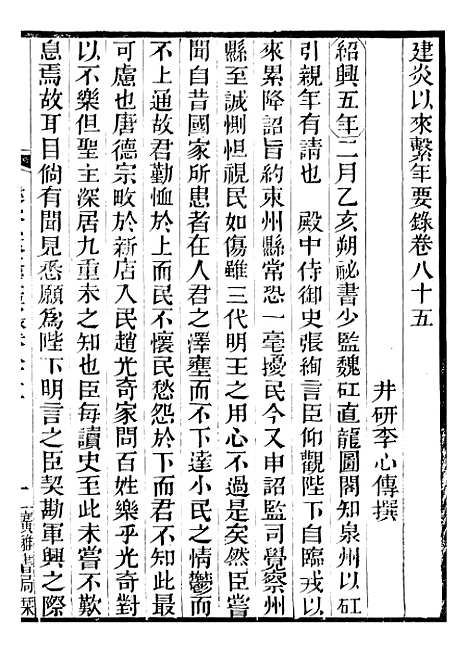 建炎以來繫年要錄卷八十五
井研李心傳撰
紹興五年二月乙亥朔祕書少監魏矼直龍圖閣知泉州以矼
引親年有請也　殿中侍御史張絢言臣仰觀陛下自臨戎以
來累降詔旨約束州縣常恐一毫擾民今又申詔監司覺察州
縣至誠惻怛視民如傷雖三代明王之用心不過是矣然臣嘗
聞自昔國家所患者在人君之澤壅而不下達小民之情鬱而
不上通故君勤恤於上而民不懷民愁怨於下而君不知此最
可慮也唐德宗畋於新店入民趙光奇家問百姓樂乎光奇對
以不樂但聖主深居九重未之知也臣每讀史至此未嘗不歎
息焉故耳目倘有聞見悉願為陛下明言之臣契勘軍興之際
一
廣雅書局栞